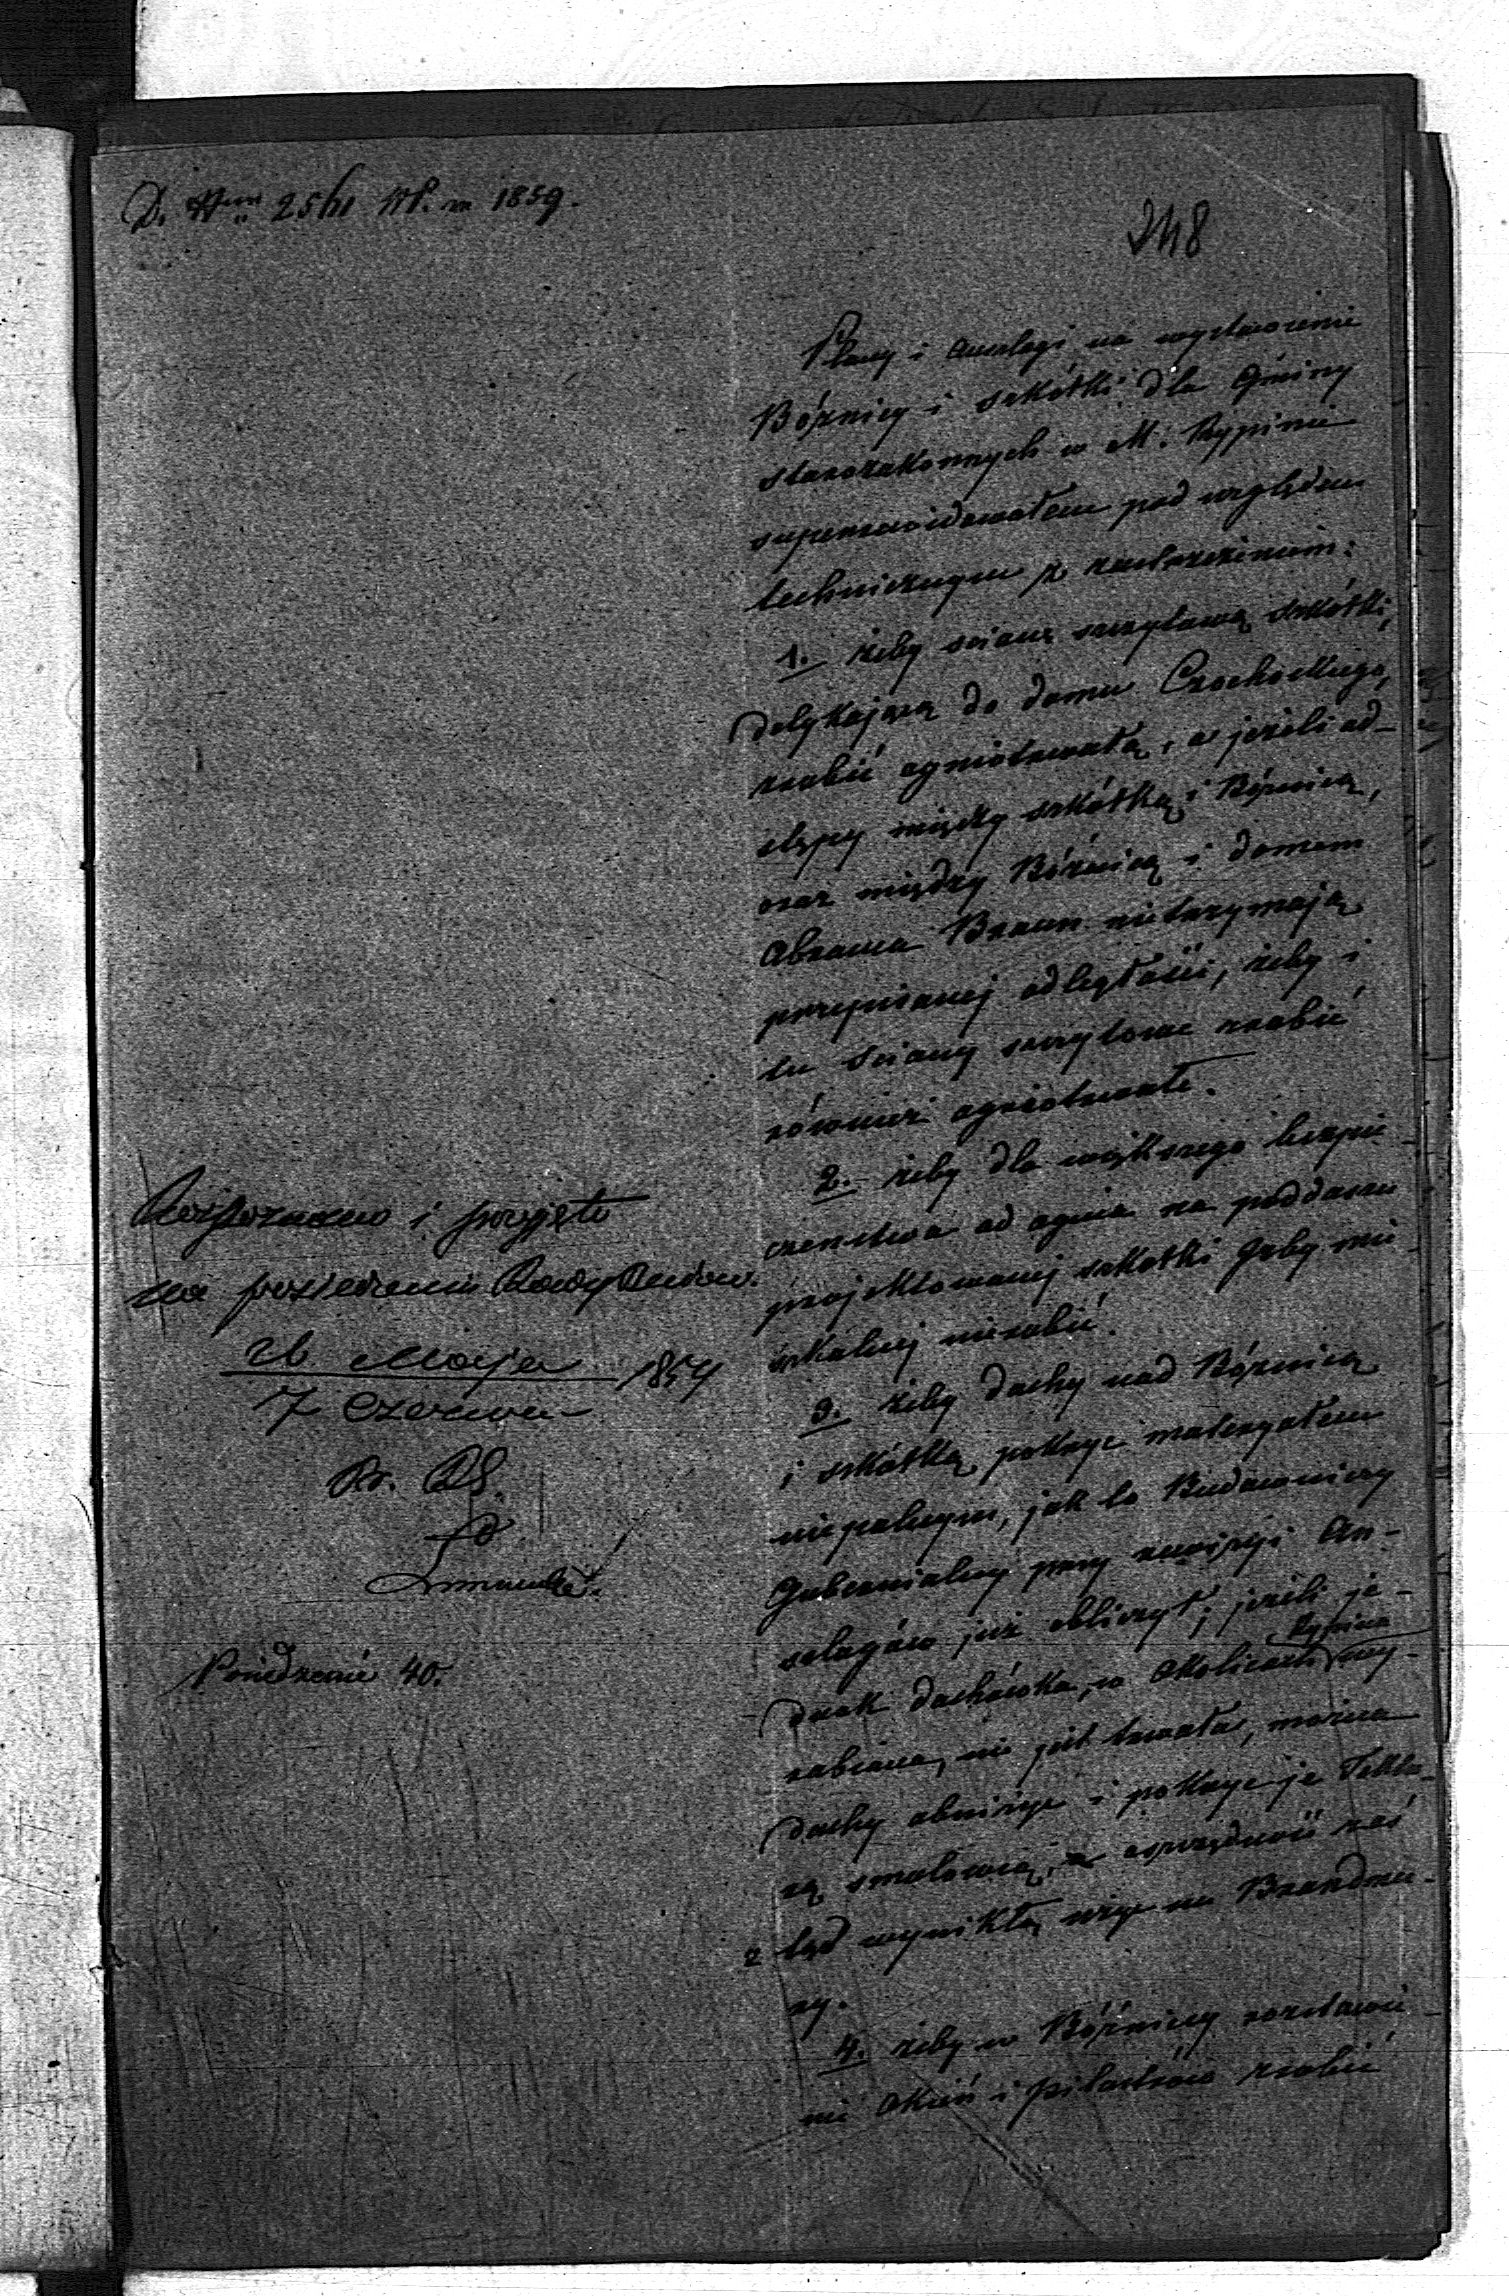 248
Plany i anszlagi na wystawienie
Bóżnicy i szkółki dla Gminy
starozakonnych w M: Rypinie
superrewidowałem pod względem
technicznym z zastrzeżeniem:
1. żeby scianę szczytową szkółki,
dotykającą do domu Czochockiego,
zrobić ogniotrwałą, a jeżeli od-
stępy między szkółką i Bóżnicą,
oraz między Bóżnicą i domem
Abrama Braun nietrzymają
przepisanej odległości, żeby i
tu sciany szczytowe zrobić
również ogniotrwałe.
2. żeby dla większego bezpie-
czenstwa od ognia na poddaszu
projektowanej szkółki izby mie-
szkalnej nierobić.
3. żeby dachy nad Bóżnicą
i szkółką pokryć materyałem
niepalnym, jak to Budowniczy
Gubernialny przy rewizyi An-
szlagów już obliczył; jeżeli je-
dnak dachówka, w okolicach Rypina wy-
rabiana, nie jest trwała, można
dachy obniżyć i pokryć je Tektu-
rą smołowcą, oszczędność zaś
z tąd wynikłą użyć na Brandmu-
ry.
4. żeby w Bóżnicy rozstawie-
nie okien i pilastrów zrobić
Rozpoznano i przyjęto
na posiedzeniu Rady Budow.
26 Maja
7 Czerwca 1859
Posiedzenie 40.